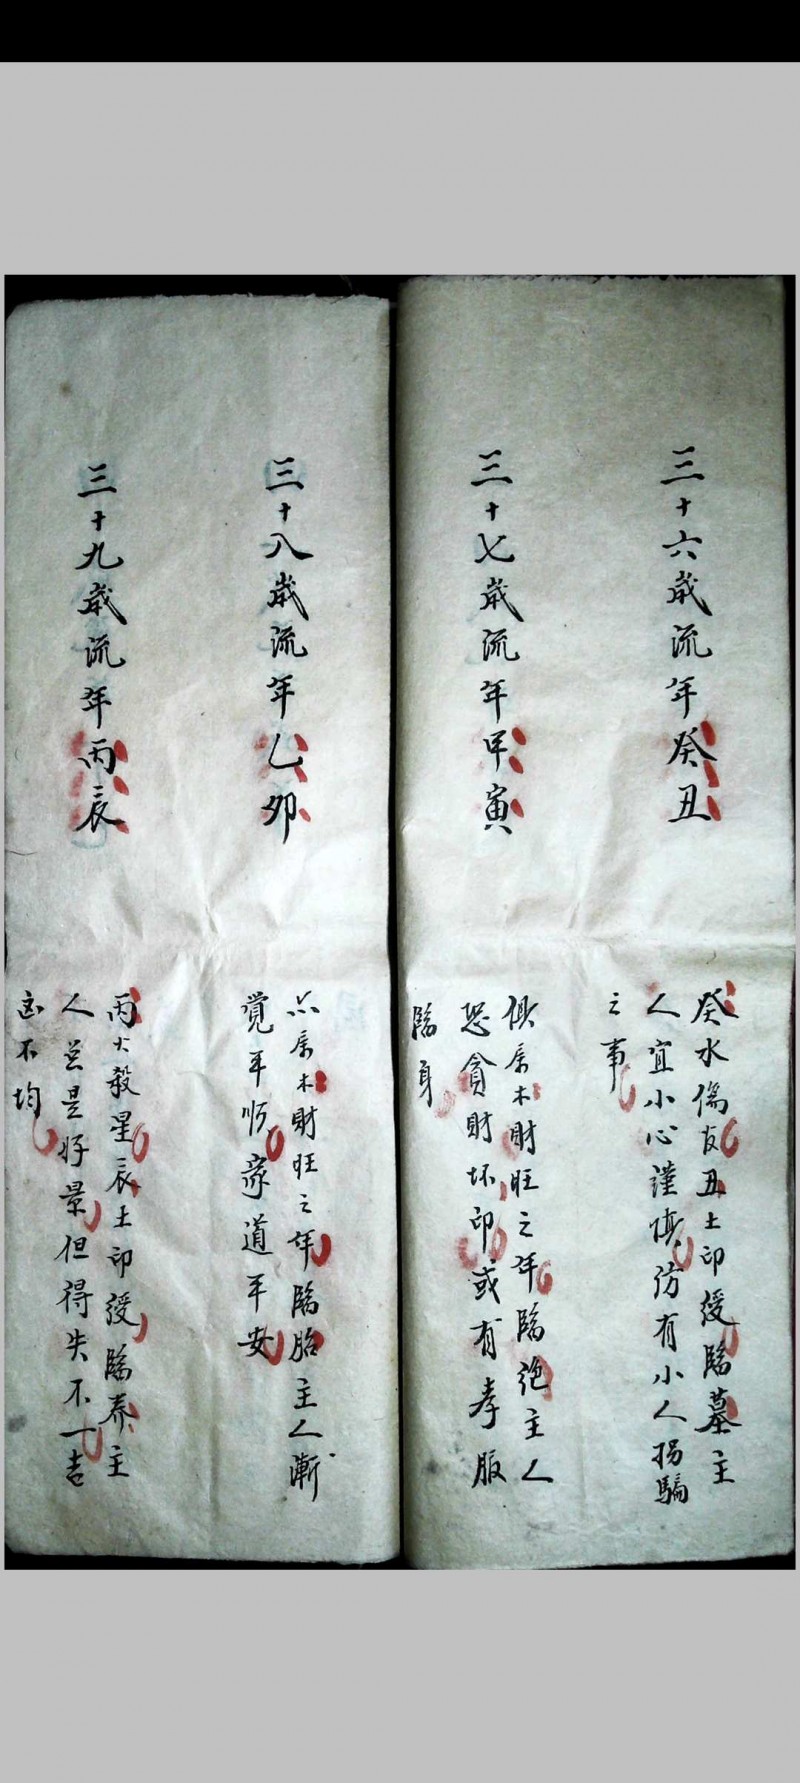 三十六歲流年癸丑
癸水傷友丑土印綬臨墓主
人宜小心謹慎防有小人拐騙
之事
三十七歲流年甲寅
俱屬木財旺之年臨絕主人
恐貪財坏印或有孝服
臨身
三十八歲流年乙卯
屬木財旺之年臨胎主人漸
覺平順家道平安
三十九歲流年丙辰
丙火殺星辰土印綬臨养主
人总是好景但得失不一吉
凶不均